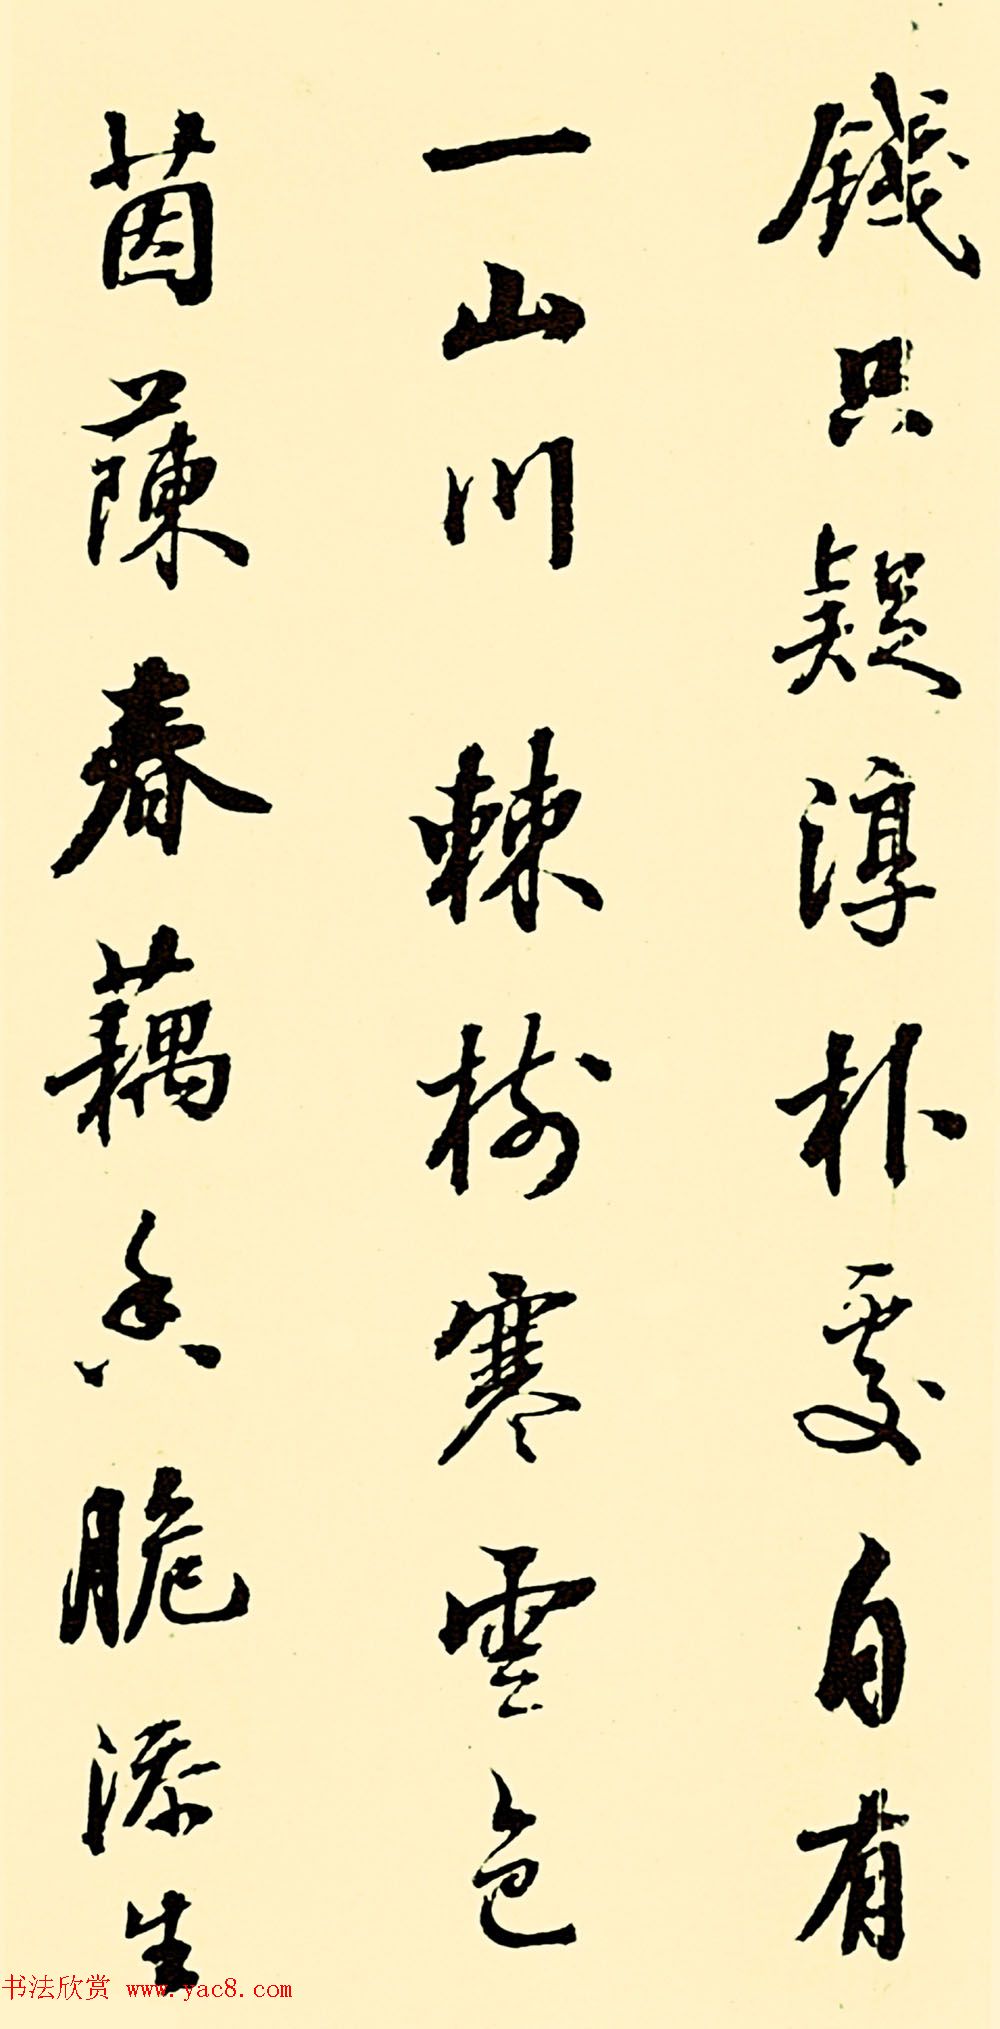 錢只疑淳朴處自有
一山川棘樹寒雲色
茵蔯春藕香脆添生
书法欣赏 www.yac8.com